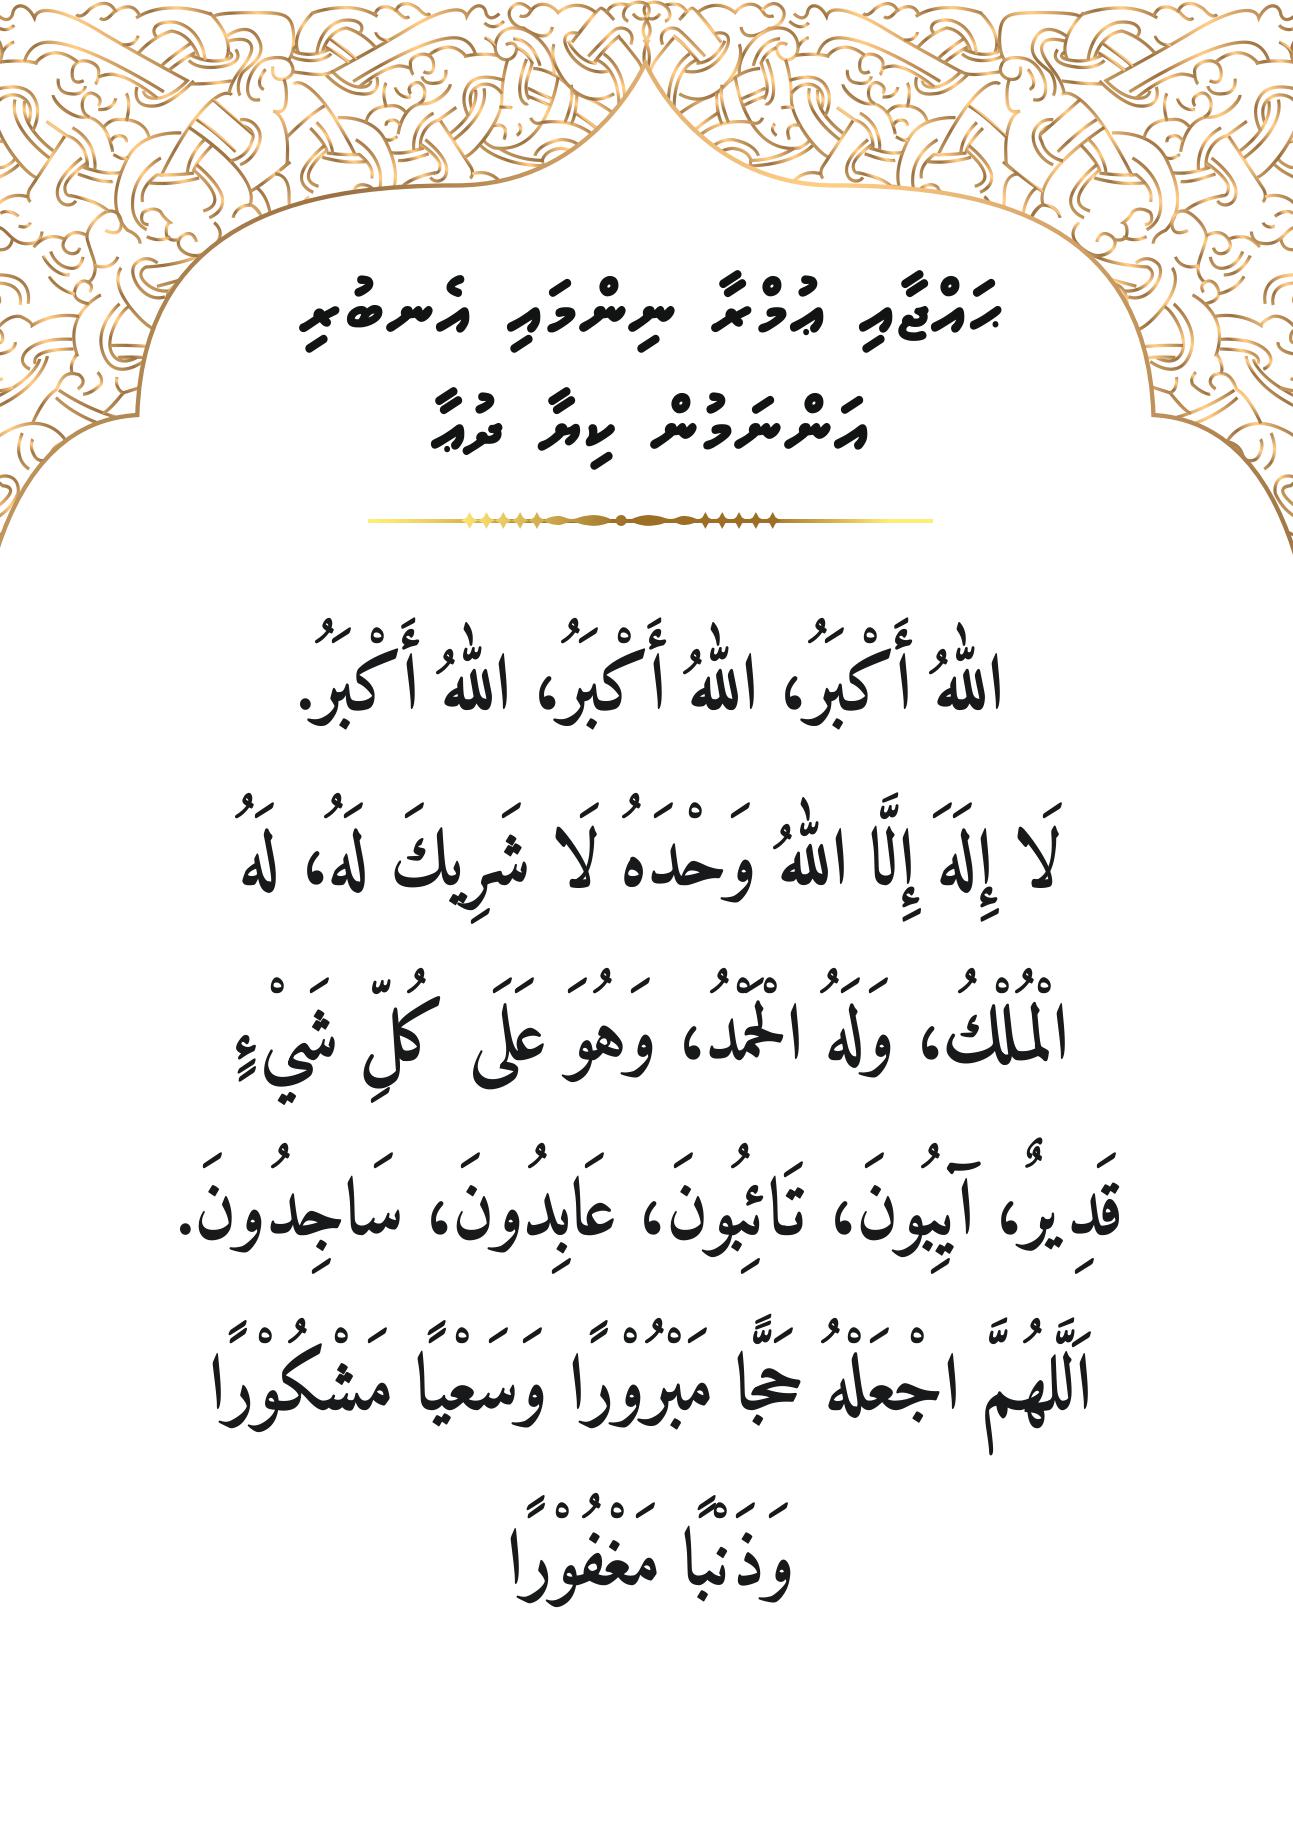 ޙައްޖާއި ޢުމްރާ ނިންމައި އެނބުރި
އަންނަމުން ކިޔާ ދުޢާ
اللهُ أَكْبَرُ، اللهُ أَكْبَرُ، اللهُ أَكْبَرُ.
لَا إِلَهَ إِلَّا اللهُ وَحْدَهُ لَا شَرِيكَ لَهُ، لَهُ
الْمُلْكُ، وَلَهُ الْحَمْدُ، وَهُوَ عَلَى كُلِّ شَيْءٍ
قَدِيرٌ، آيِبُونَ، تَائِبُونَ، عَابِدُونَ، سَاجِدُونَ.
اَللَّهُمَّ اجْعَلْهُ حَجًّا مَبْرُوْرًا وَسَعْيًا مَشْكُوْرًا
وَذَنْبًا مَغْفُوْرًا